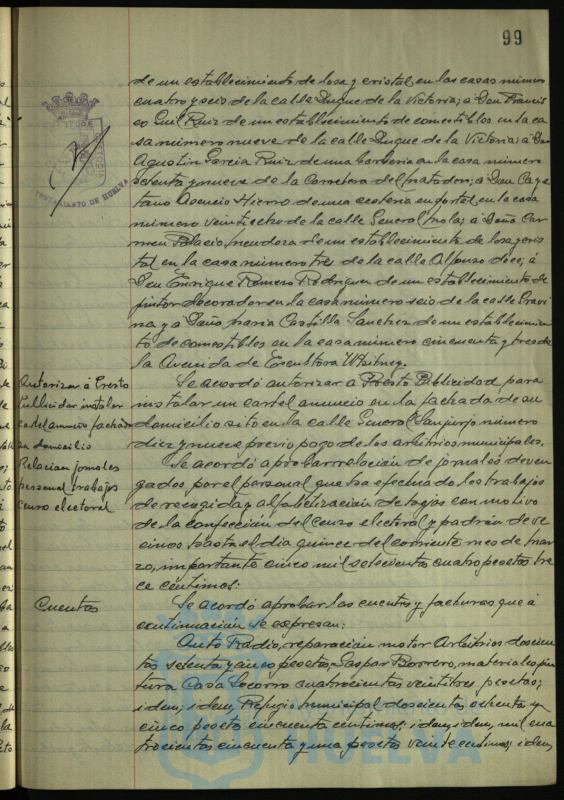 99
de un establecimiento de losa y cristal en las casas número
cuatro y seis de la calle Duque de la Victoria; a Don Francis
co Gil Ruiz de un establecimiento de comestibles en la ca
sa número nueve de la calle Duque de la Victoria; a Don
Agustin Garcia Ruiz de una barberia en la casa número
setenta y nueve de la Carretera del Matadero; á Don Caye
tano Asencio Hierro de una en portal en la casa
número veintiocho de la calle General Mola; a Doña Car
men Palacio Mendoza de un establecimiento de losa y cris
tal en la casa número tres de la calle Alfonso doce; á
Don Enrique Romero Rodriguez de un establecimiento de
pintor decorador en la casa número seis de la calle Gravi
na y á Doña Maria Castilla Sanchez de un establecimien
to de comestibles en la casa número cincuenta y tres de
la Avenida de Escultora Whitney.
Autorizar á Presto
Publicidad instalar
cartel anuncio fachada
su domicilio
Se acordó autorizar a Presto Publicidad para
instalar un cartel anuncio en la fachada de su
domicilio sito en la calle General Sanjurjo número
diez y nueve previo pago de los arbitrios municipales.
Relacion jornales
personal trabajos
censo electoral
Se acordó aprobar relación de jornales deven
gados por el personal que ha efectuado los trabajos
de recogida y alfabetización de hojas con motivo
de la confección del censo electoral y padrón de ve
cinos hasta el dia quince del corriente mes de mar
zo, importante cinco mil setecientas cuatro pesetas tre
ce céntimos:
Cuentas
Se acordó aprobar las cuentas y facturas que á
continuación se expresan:
Auto Radio, reparación motor Arbitrios doscien
tas setenta y cinco pesetas; Gaspar Borrero, materiales pin
tura Casa Socorro cuatrocientas veintitres pesetas;
idem, idem, Refugio Municipal doscientas ochenta y
cinco pesetas cincuenta céntimos; idem, idem, mil cua
trocientas cincuenta y una pesetas veinte centimos; idem,
AYUNTAMIENTO DE HUELVA
HUELVA